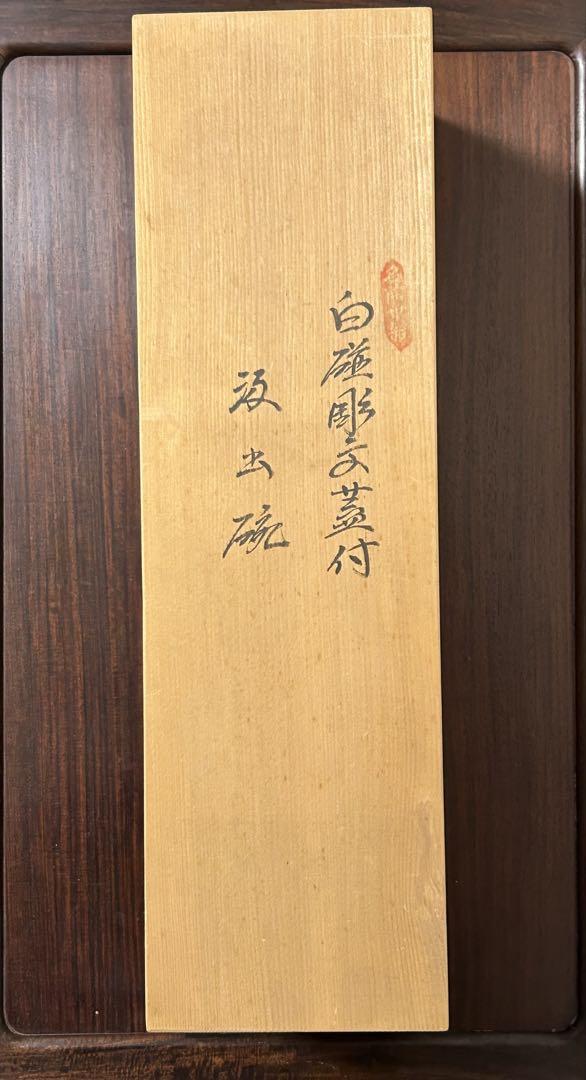 白磁彫文蓋付
汲出碗